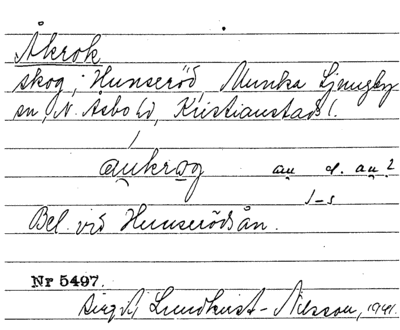 Åkrok
skog, Hunseröd, Munka Ljungby
sn, N. Åsbo hd, Kristianstads l.
au̯krog au̯ el. au̯?
1-s
Bel. vid Hunserödsån.
Nr 5497.
Birgit Lundkvist-Nilsson, 1941.